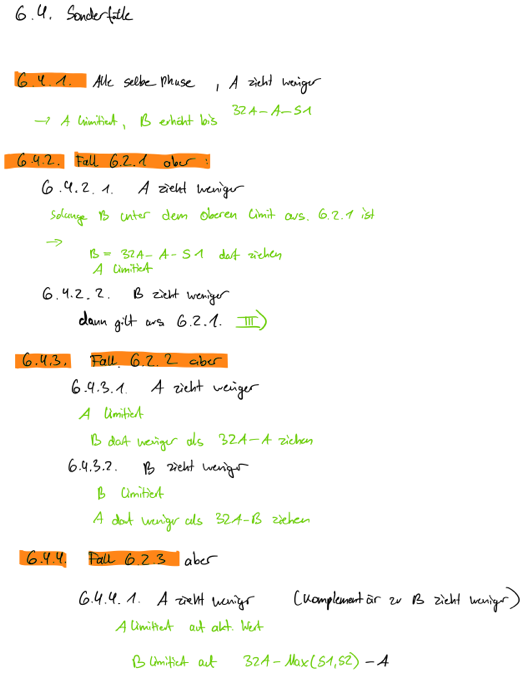 6.4. Sonderfälle
6.4.1. Alle selbe Phase, A zieht weniger
→ A limitiert, B erhöht bis 32A-A-S1
6.4.2. Fall 6.2.1 aber:
6.4.2.1. A zieht weniger
Solange B unter dem oberen Limit aus 6.2.1 ist
→
B = 32A-A-S1 darf ziehen
A limitiert
6.4.2.2. B zieht weniger
dann gilt aus 6.2.1. III)
6.4.3. Fall 6.2.2 aber
6.4.3.1. A zieht weniger
A limitiert
B darf weniger als 32A-A ziehen
6.4.3.2. B zieht weniger
B limitiert
A darf weniger als 32A-B ziehen
6.4.4. Fall 6.2.3 aber
6.4.4.1. A zieht weniger (Komplementär zu B zieht weniger)
A limitiert auf akt. Wert
B limitiert auf 32A-Max(S1,S2)-A